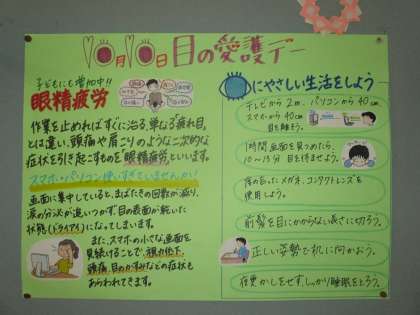 10月10日 目の愛護デー
子どもにも増加中!!
眼精疲労
作業を止めればすぐに治る、単なる疲れ目
とは違い、頭痛や肩こりのような二次的な
症状を引き起こすものを眼精疲労といいます。
スマホ・パソコン使いすぎていませんか!
画面に集中していると、まばたきの回数が減り、
涙の分泌が追いつかず目の表面が乾いた
状態(ドライアイ)になってしまいます。
また、スマホの小さな画面を
見続けることで、視力低下、
頭痛、目のかすみなどの症状も
あらわれてきます。
にやさしい生活をしよう
テレビから2m、パソコンから40cm、
スマホから40cm
目を離そう。
1時間画面を見つめたら、
10〜15分 目を休ませよう。
度の合ったメガネ、コンタクトレンズを
使用しよう。
前髪を目にかからない長さに切ろう。
正しい姿勢で机に向かおう。
夜更かしをせず、しっかり睡眠をとろう。